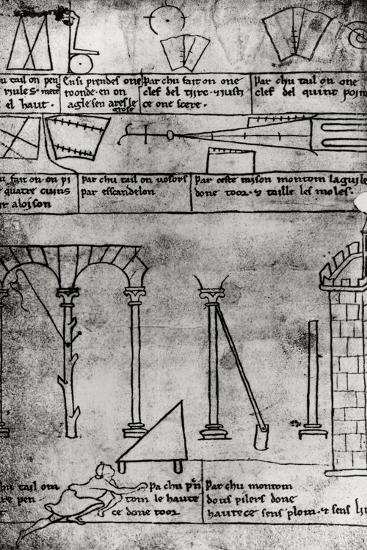 u tail on pen
riules . mete
el haut .
Ensi prendes one
roonde . en on
agle sen ares le
grose
Par chu fait on one
clef del tirc . ⁊ iusti
ce one scere .
Par chu tail on one
clef del quint poin
u fait on . on pi
e quatre cuins
aloison
Par chu tail on vosors
par esscandelon
Par ceste raison montom laguile
done toor . ⁊ taille les moles .
u tail om
re pen
Pa chu pn
tom le haute
ce done toor
Par chu montom
dous pilers done
hautece sens plom . ⁊ sens li